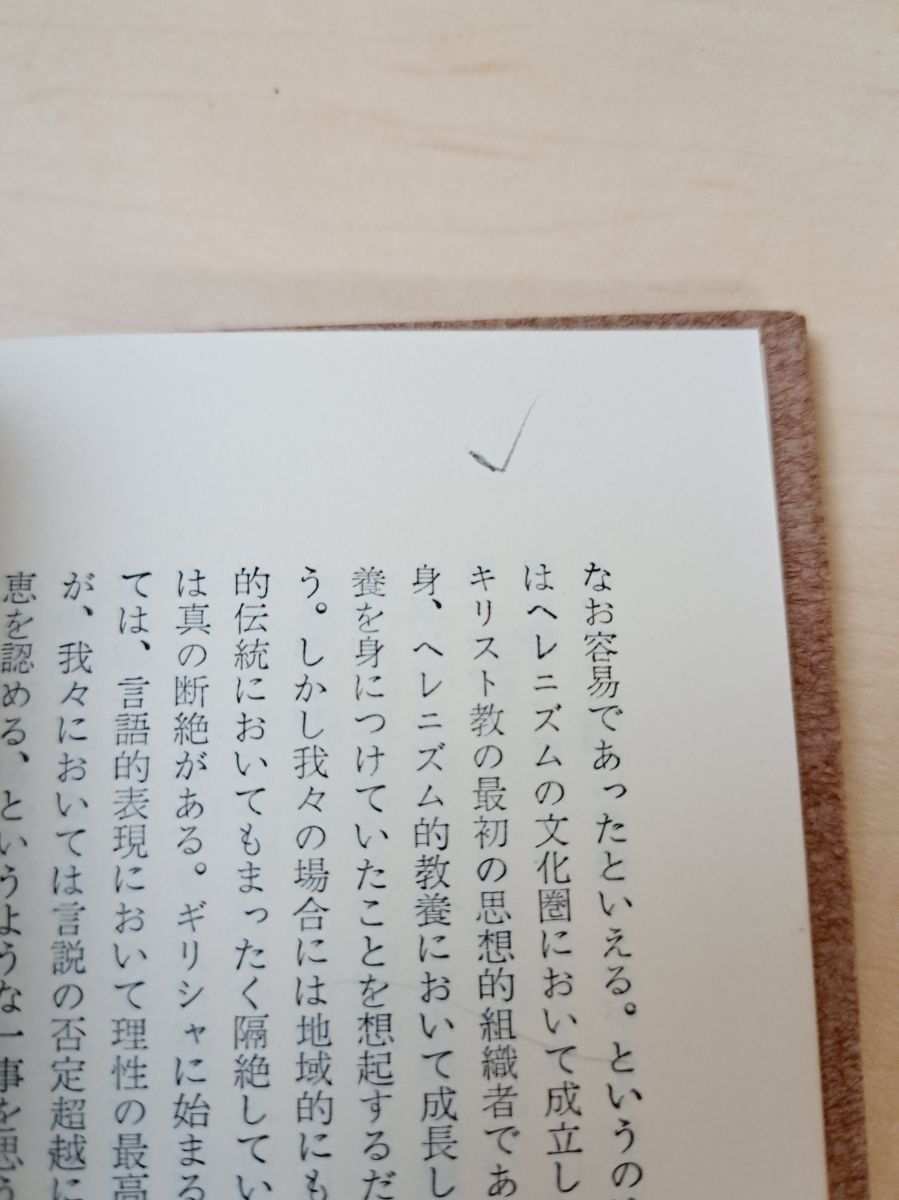 なお容易であったといえる。というの
はヘレニズムの文化圏において成立し
キリスト教の最初の思想的組織者であ
身、ヘレニズム的教養において成長し
養を身につけていたことを想起するだ
う。しかし我々の場合には地域的にも
的伝統においてもまったく隔絶してい
は真の断絶がある。ギリシャに始まる
ては、言語的表現において理性の最高
が、我々においては言説の否定超越に
恵を認める、というような一事を思う